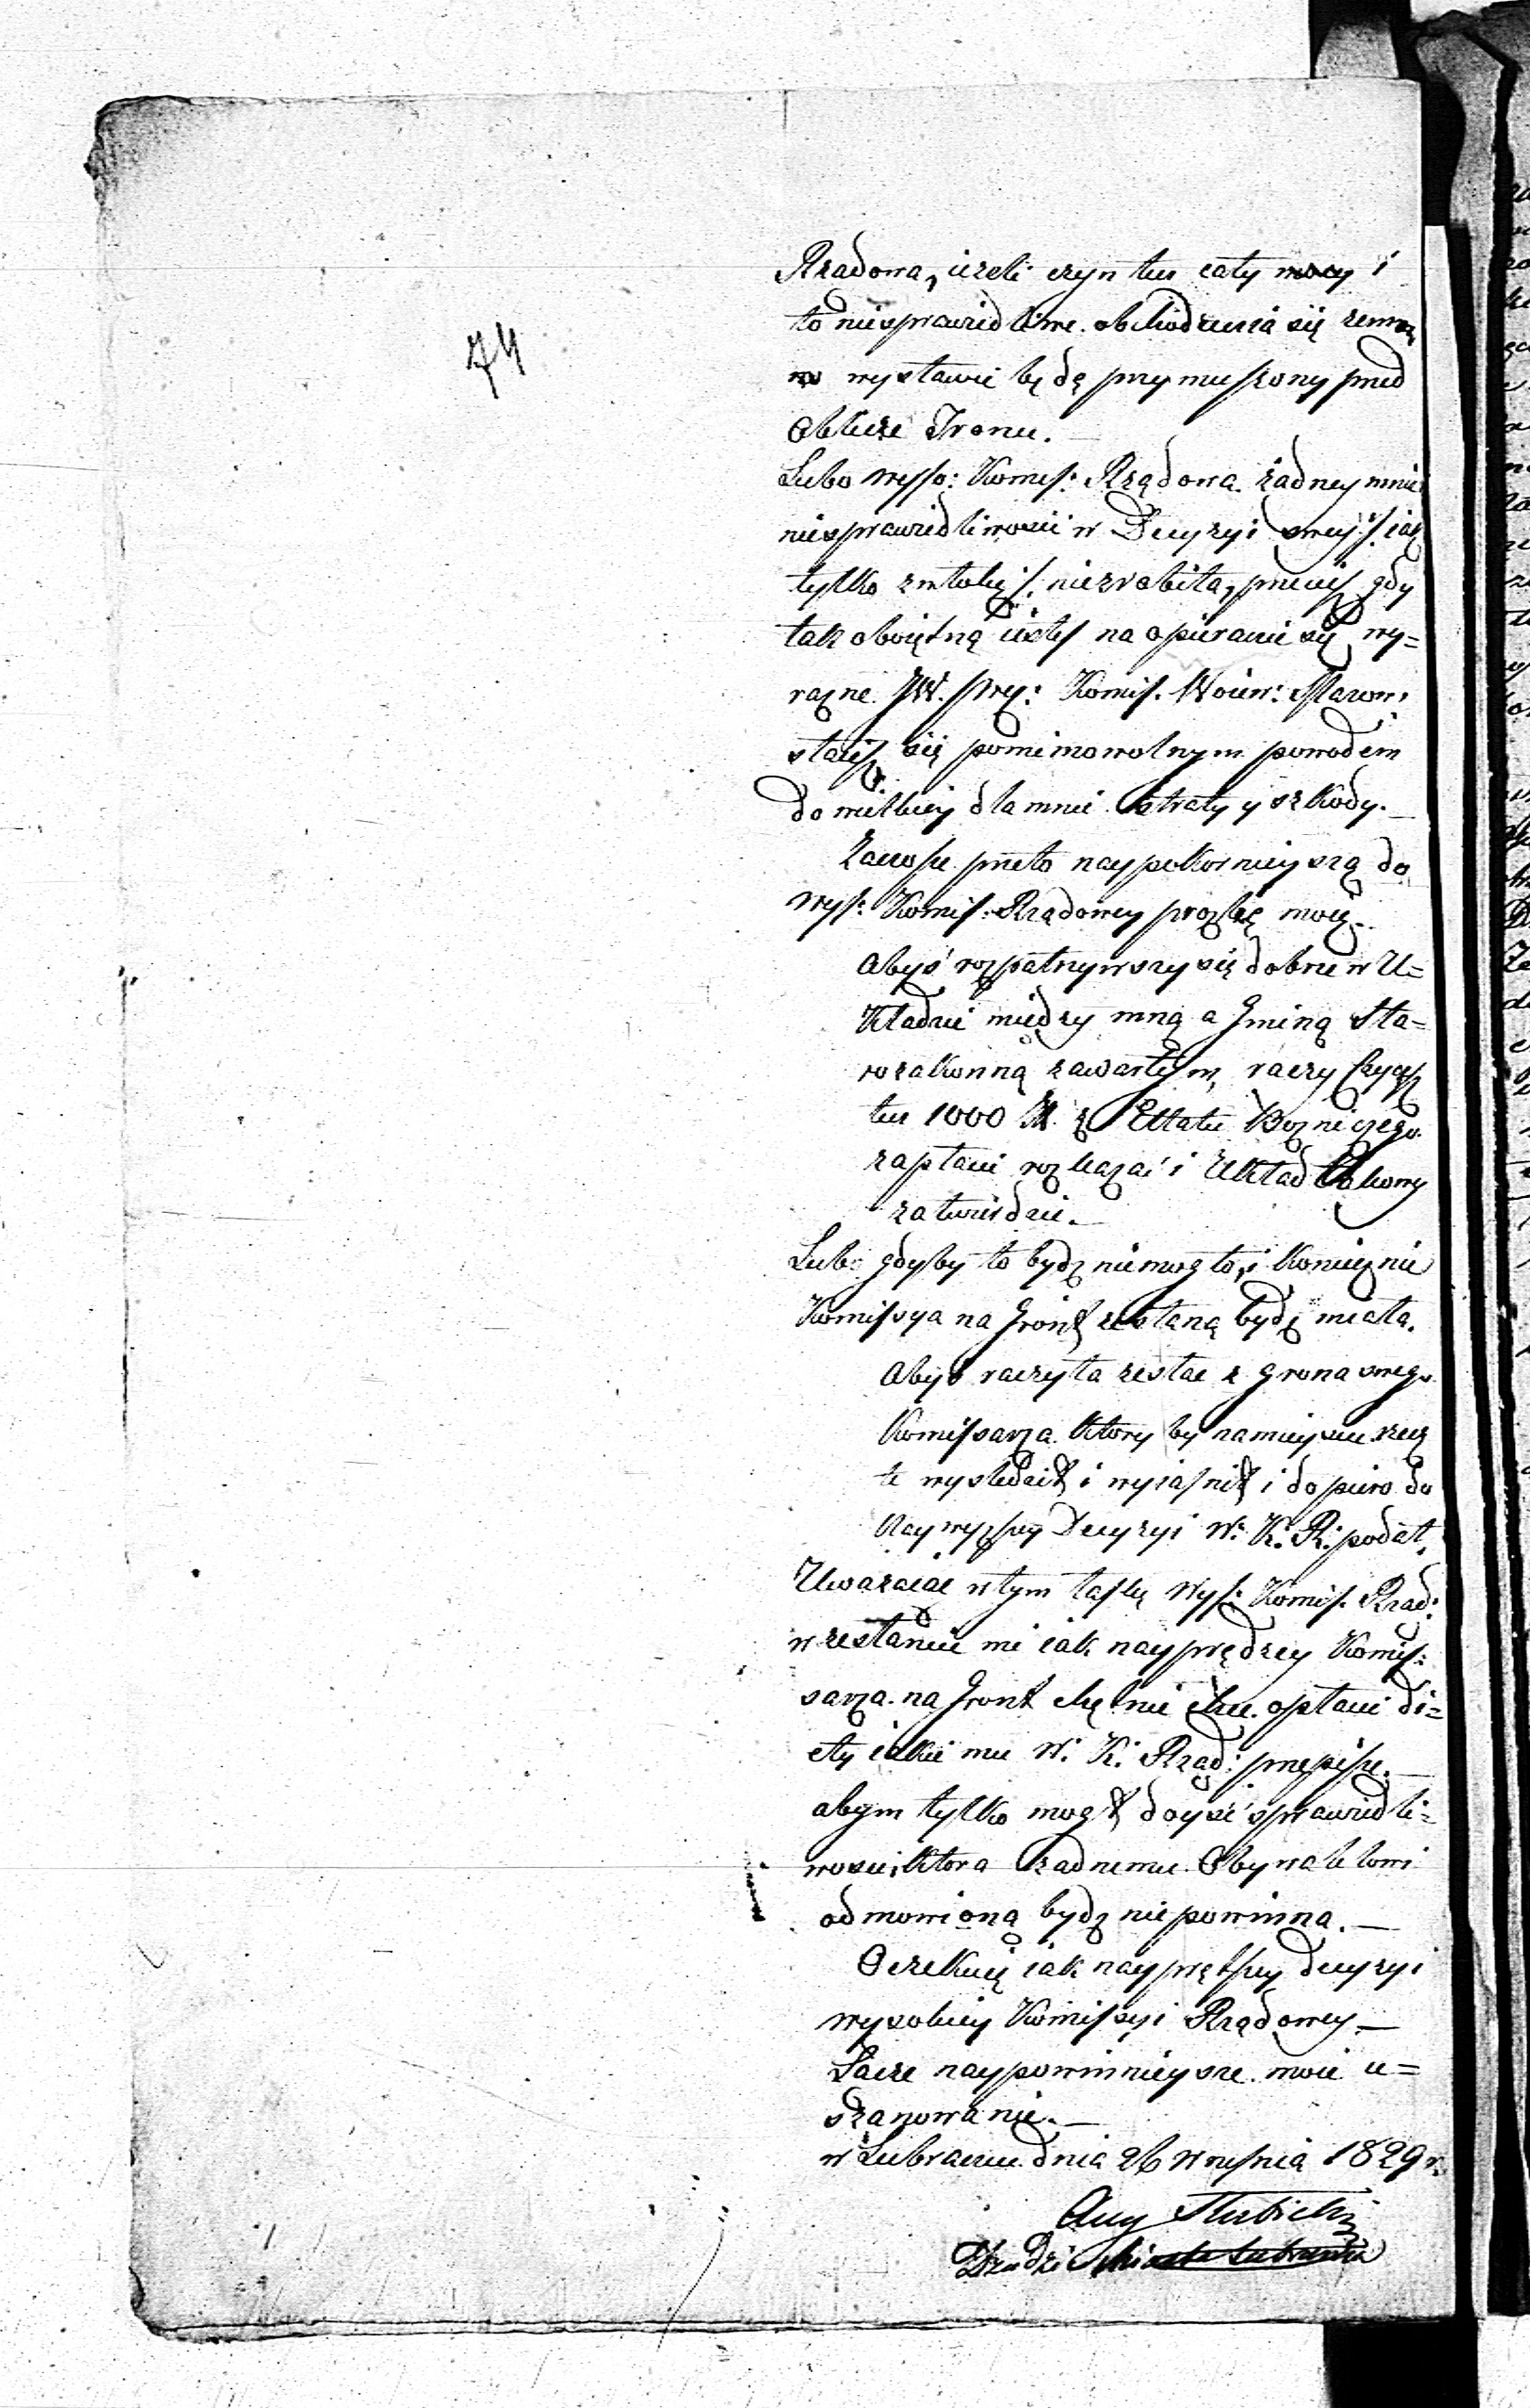 74
Rządowa, ieżeli czyn ten cały i
to niesprawiedliwe obchodzenia się zemną
wystawić będę przymuszony przed
Oblicze Tronu.
Lubo Wysso: Komis: Rządowa żadney mnie
niesprawiedliwosci w Decyzyi swey /: iak
tylko zwłokę :/ niezrobiła, przecięż gdy
tak oboiętną iesteś na opieranie się wy=
raźne JW. Prez: Komis. Woiew: Mazow:
staiesz się pomimowolnym powodem
do wielkiey dla mnie straty y szkody._
Zanosze przeto naypokornieyszą do
Wys: Komis: Rządowey prozbę moię._
Abyś rozpatrzywszy się dobrze w U=
kładzie między mną a Gminą Sta=
rozakonną zawartym, raczy Czynsz
ten 1000 Zł. z Etatu Bożniczego
zapłacić rozkazać i Układ
zatwierdzić._
Lub gdyby to bydz niemogło, i koniecznie
Komissya na Gront zesłaną bydz miała.
Abyś raczyła zesłac z grona swego
Komissarza ktory by namieyscu rzecz
te wysledził i wyiasnił i dopiero do
Naywyzszey Decyzyi W: K: R: podał.
Uwazaiąc wtym łaskę Wys: Komis. Rząd:
w zesłaniu mi iak nayprędzey Komis:
sarza na Gront chętnie chcę opłacić di=
ety iakie mu W: K: Rząd: przepisze._
abym tylko mogł doyść sprawiedli=
wosci, ktora żadnemu Obywatelowi
odmowioną bydz niepowinna._
Oczekuię iak nayprętszey decyzyi
wysokiey Komissyi Rządowey._
Łącze naypowinnieysze moie u=
szanowanie._
w Lubrańcu dnia 26 Wrzesnia 1829 r.
Aug Słubicki
Dziedzic Miasta Lubrańca